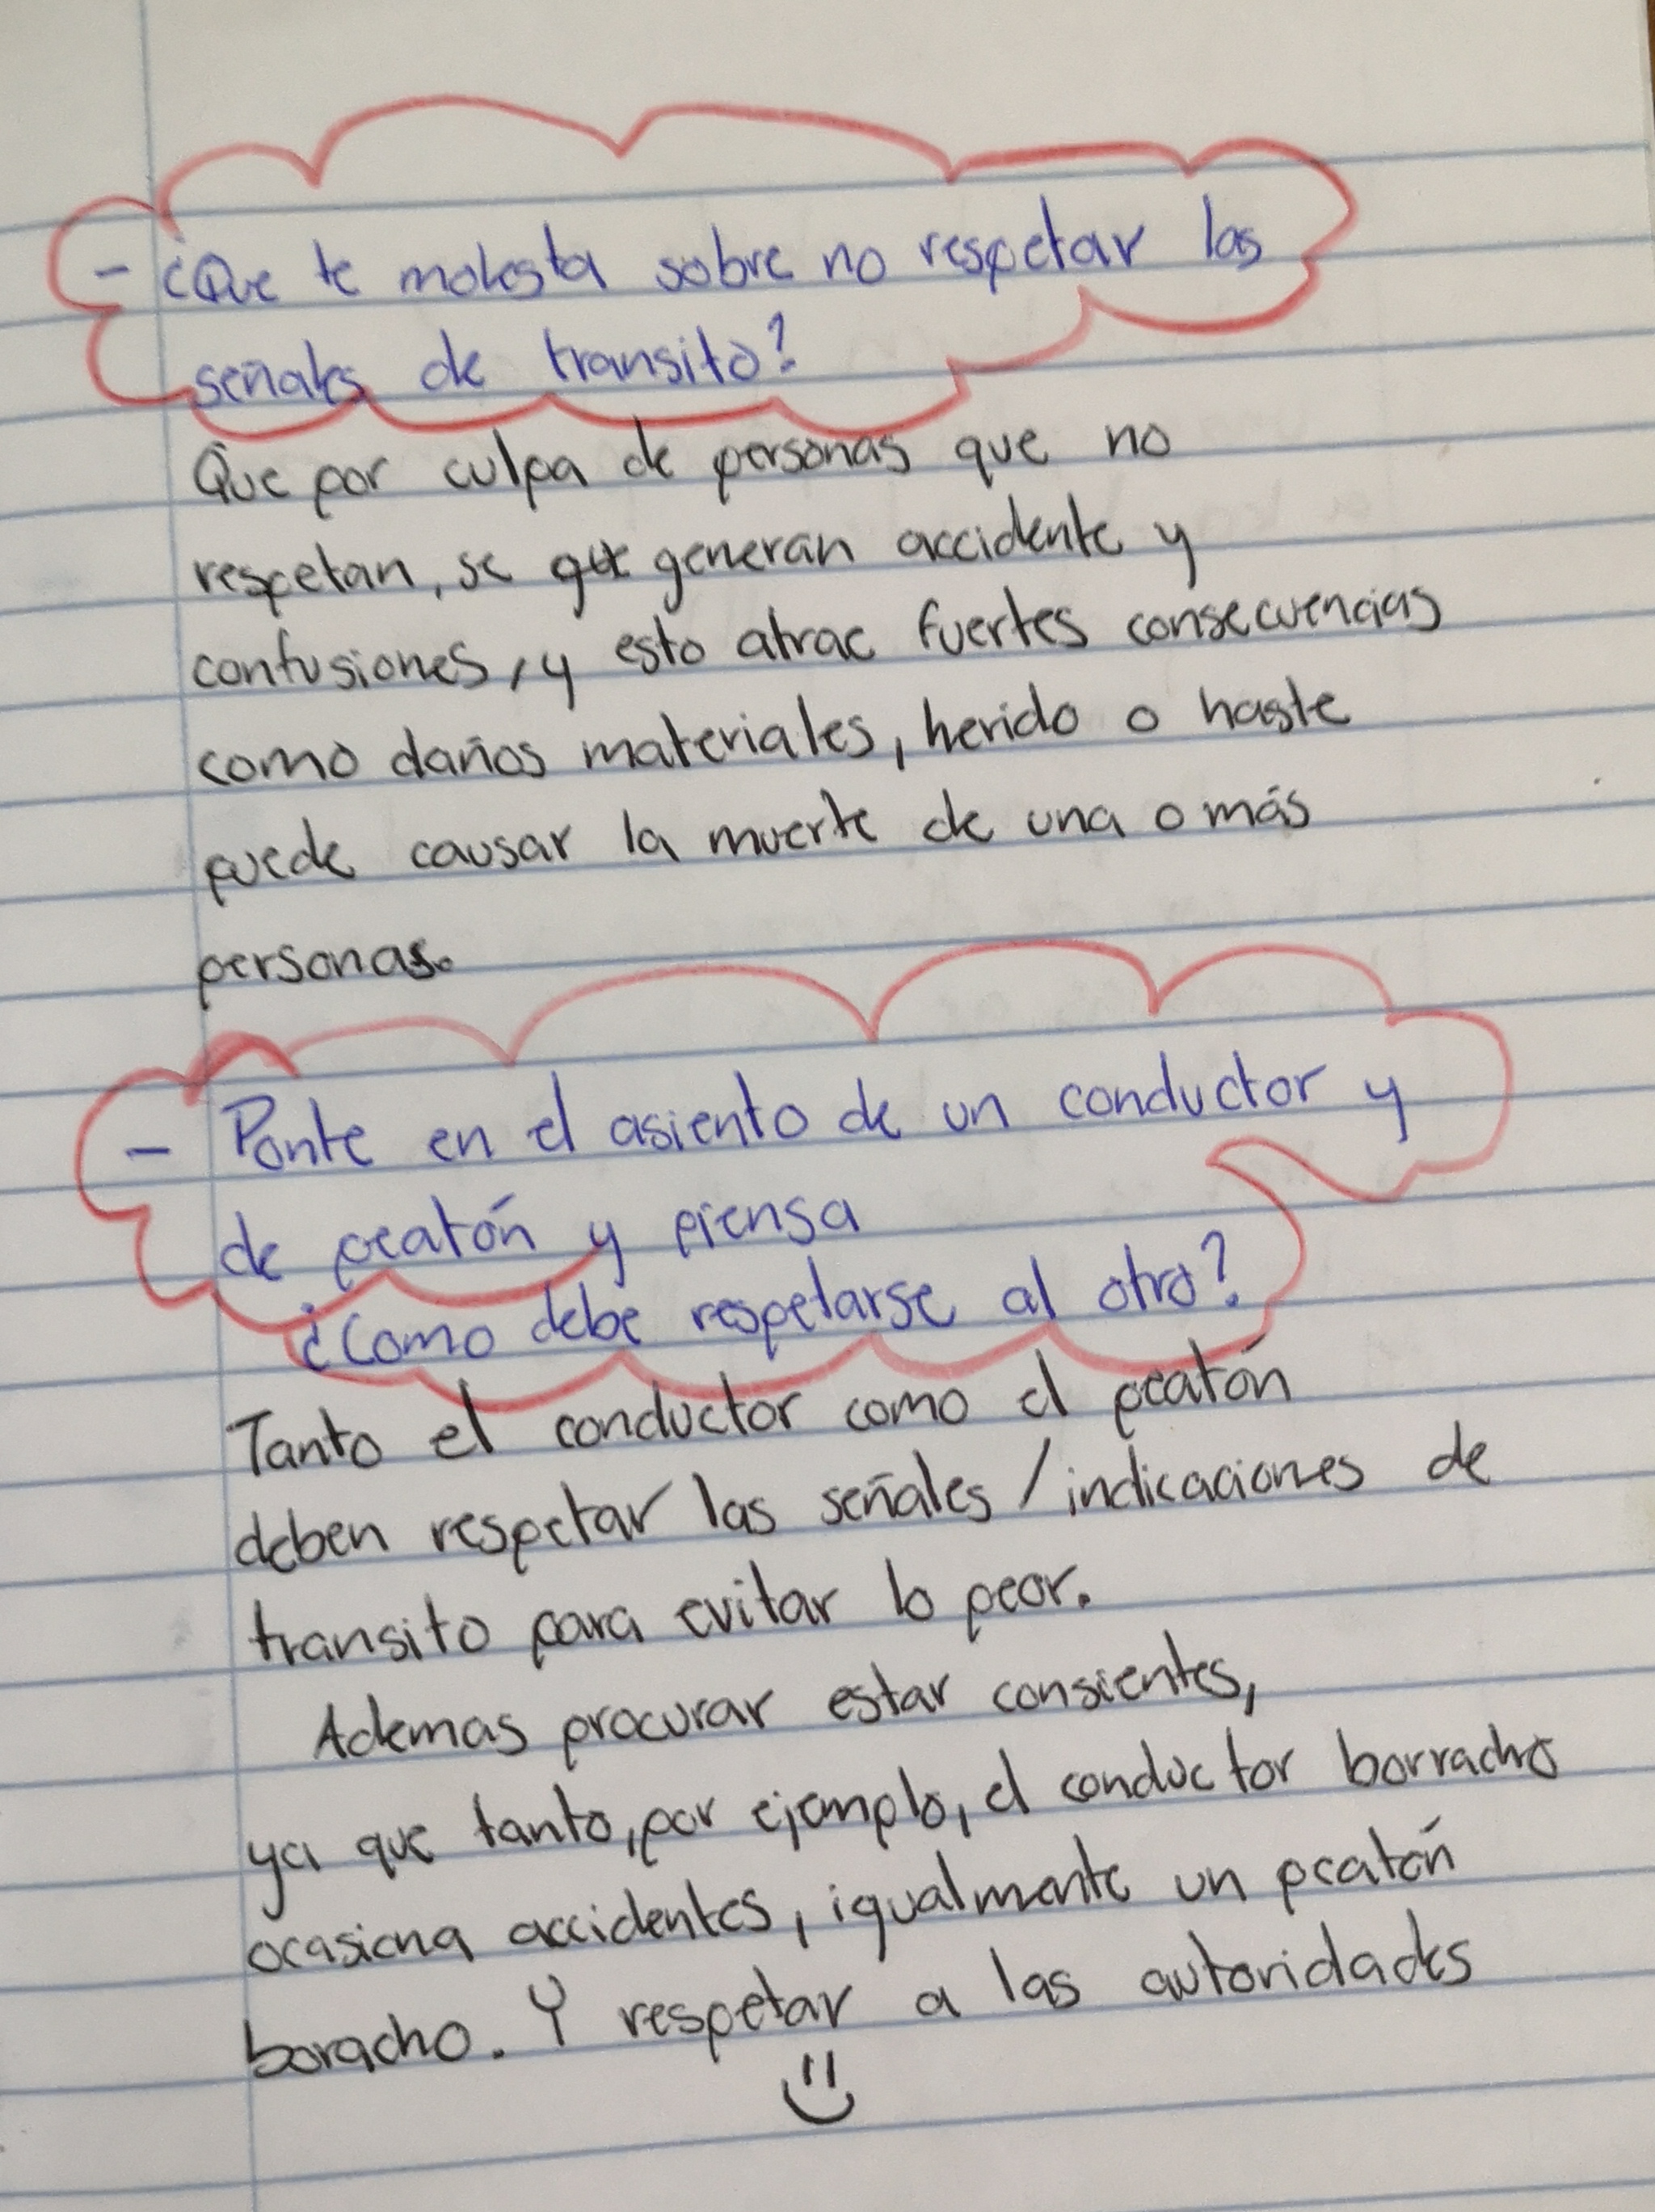 - ¿Que te molesta sobre no respetar las
señales de transito?
Que por culpa de personas que no
respetan, se generan accidente y
confusiones, y esto atrae fuertes consecuencias
como daños materiales, herido o haste
puede causar la muerte de una o más
personas.
- Ponte en el asiento de un conductor y
de peatón y piensa
¿Como debe respetarse al otro?
Tanto el conductor como el peatón
deben respetar las señales / indicaciones de
transito para evitar lo peor.
Ademas procurar estar consientes,
ya que tanto, por ejemplo, el conductor borracho
ocasiona accidentes, igualmente un peatón
boracho. Y respetar a las autoridades